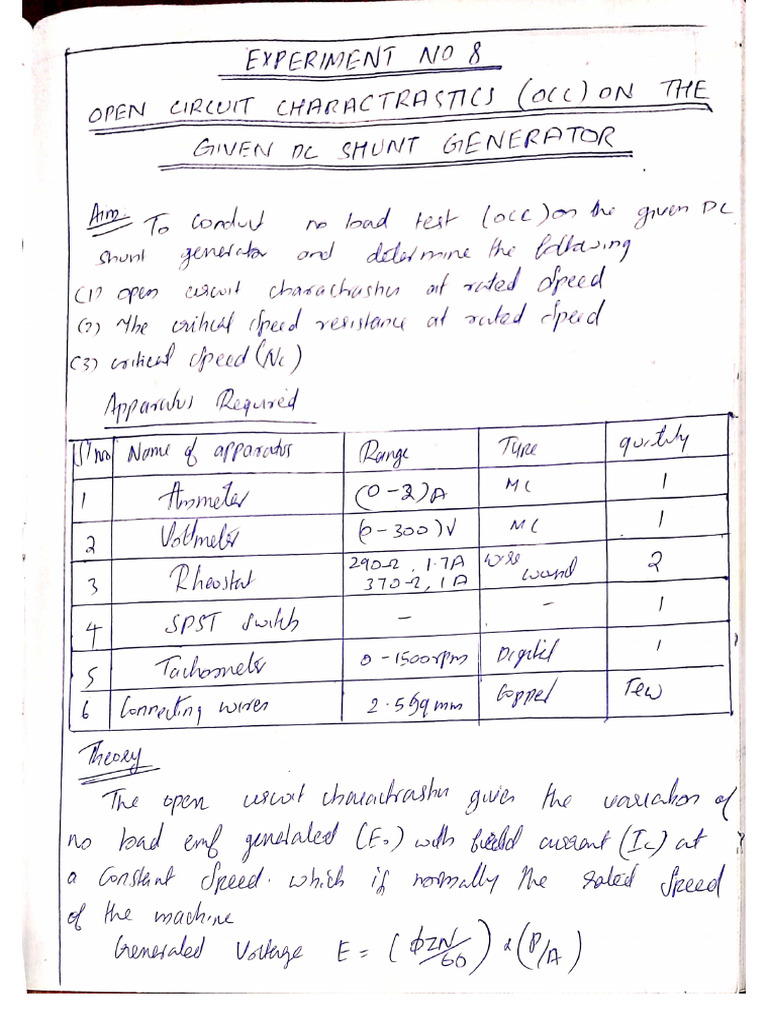 EXPERIMENT NO 8
OPEN CIRCUIT CHARACTRASTICS (OCC) ON THE
GIVEN DC SHUNT GENERATOR
Aim: To conduct no load test (OCC) on the given DC
shunt generator and determine the following
(1) open circuit charachrastics at rated speed
(2) The critical speed resistance at rated speed
(3) critical speed (Nc)
Apparatus Required
S'no Name of apparatus Range Type
1 Ammeter (0-2)A MC 1
2 Voltmeter (0-300)V MC 1
3 Rheostat 290Ω, 1.7A wire 2
370Ω, 1A wound
4 SPST switch - - 1
5 Tachometer 0-1500rpm Digital 1
6 Connecting wires 2.5sqmm Copper Few
Theory
The open circuit given the variation of
no load emf generated (E₀) with field current (Ic) at
a constant speed. which if normally the rated speed
of the machine
Generated Voltage E = (ϕZN/60) x (P/A)